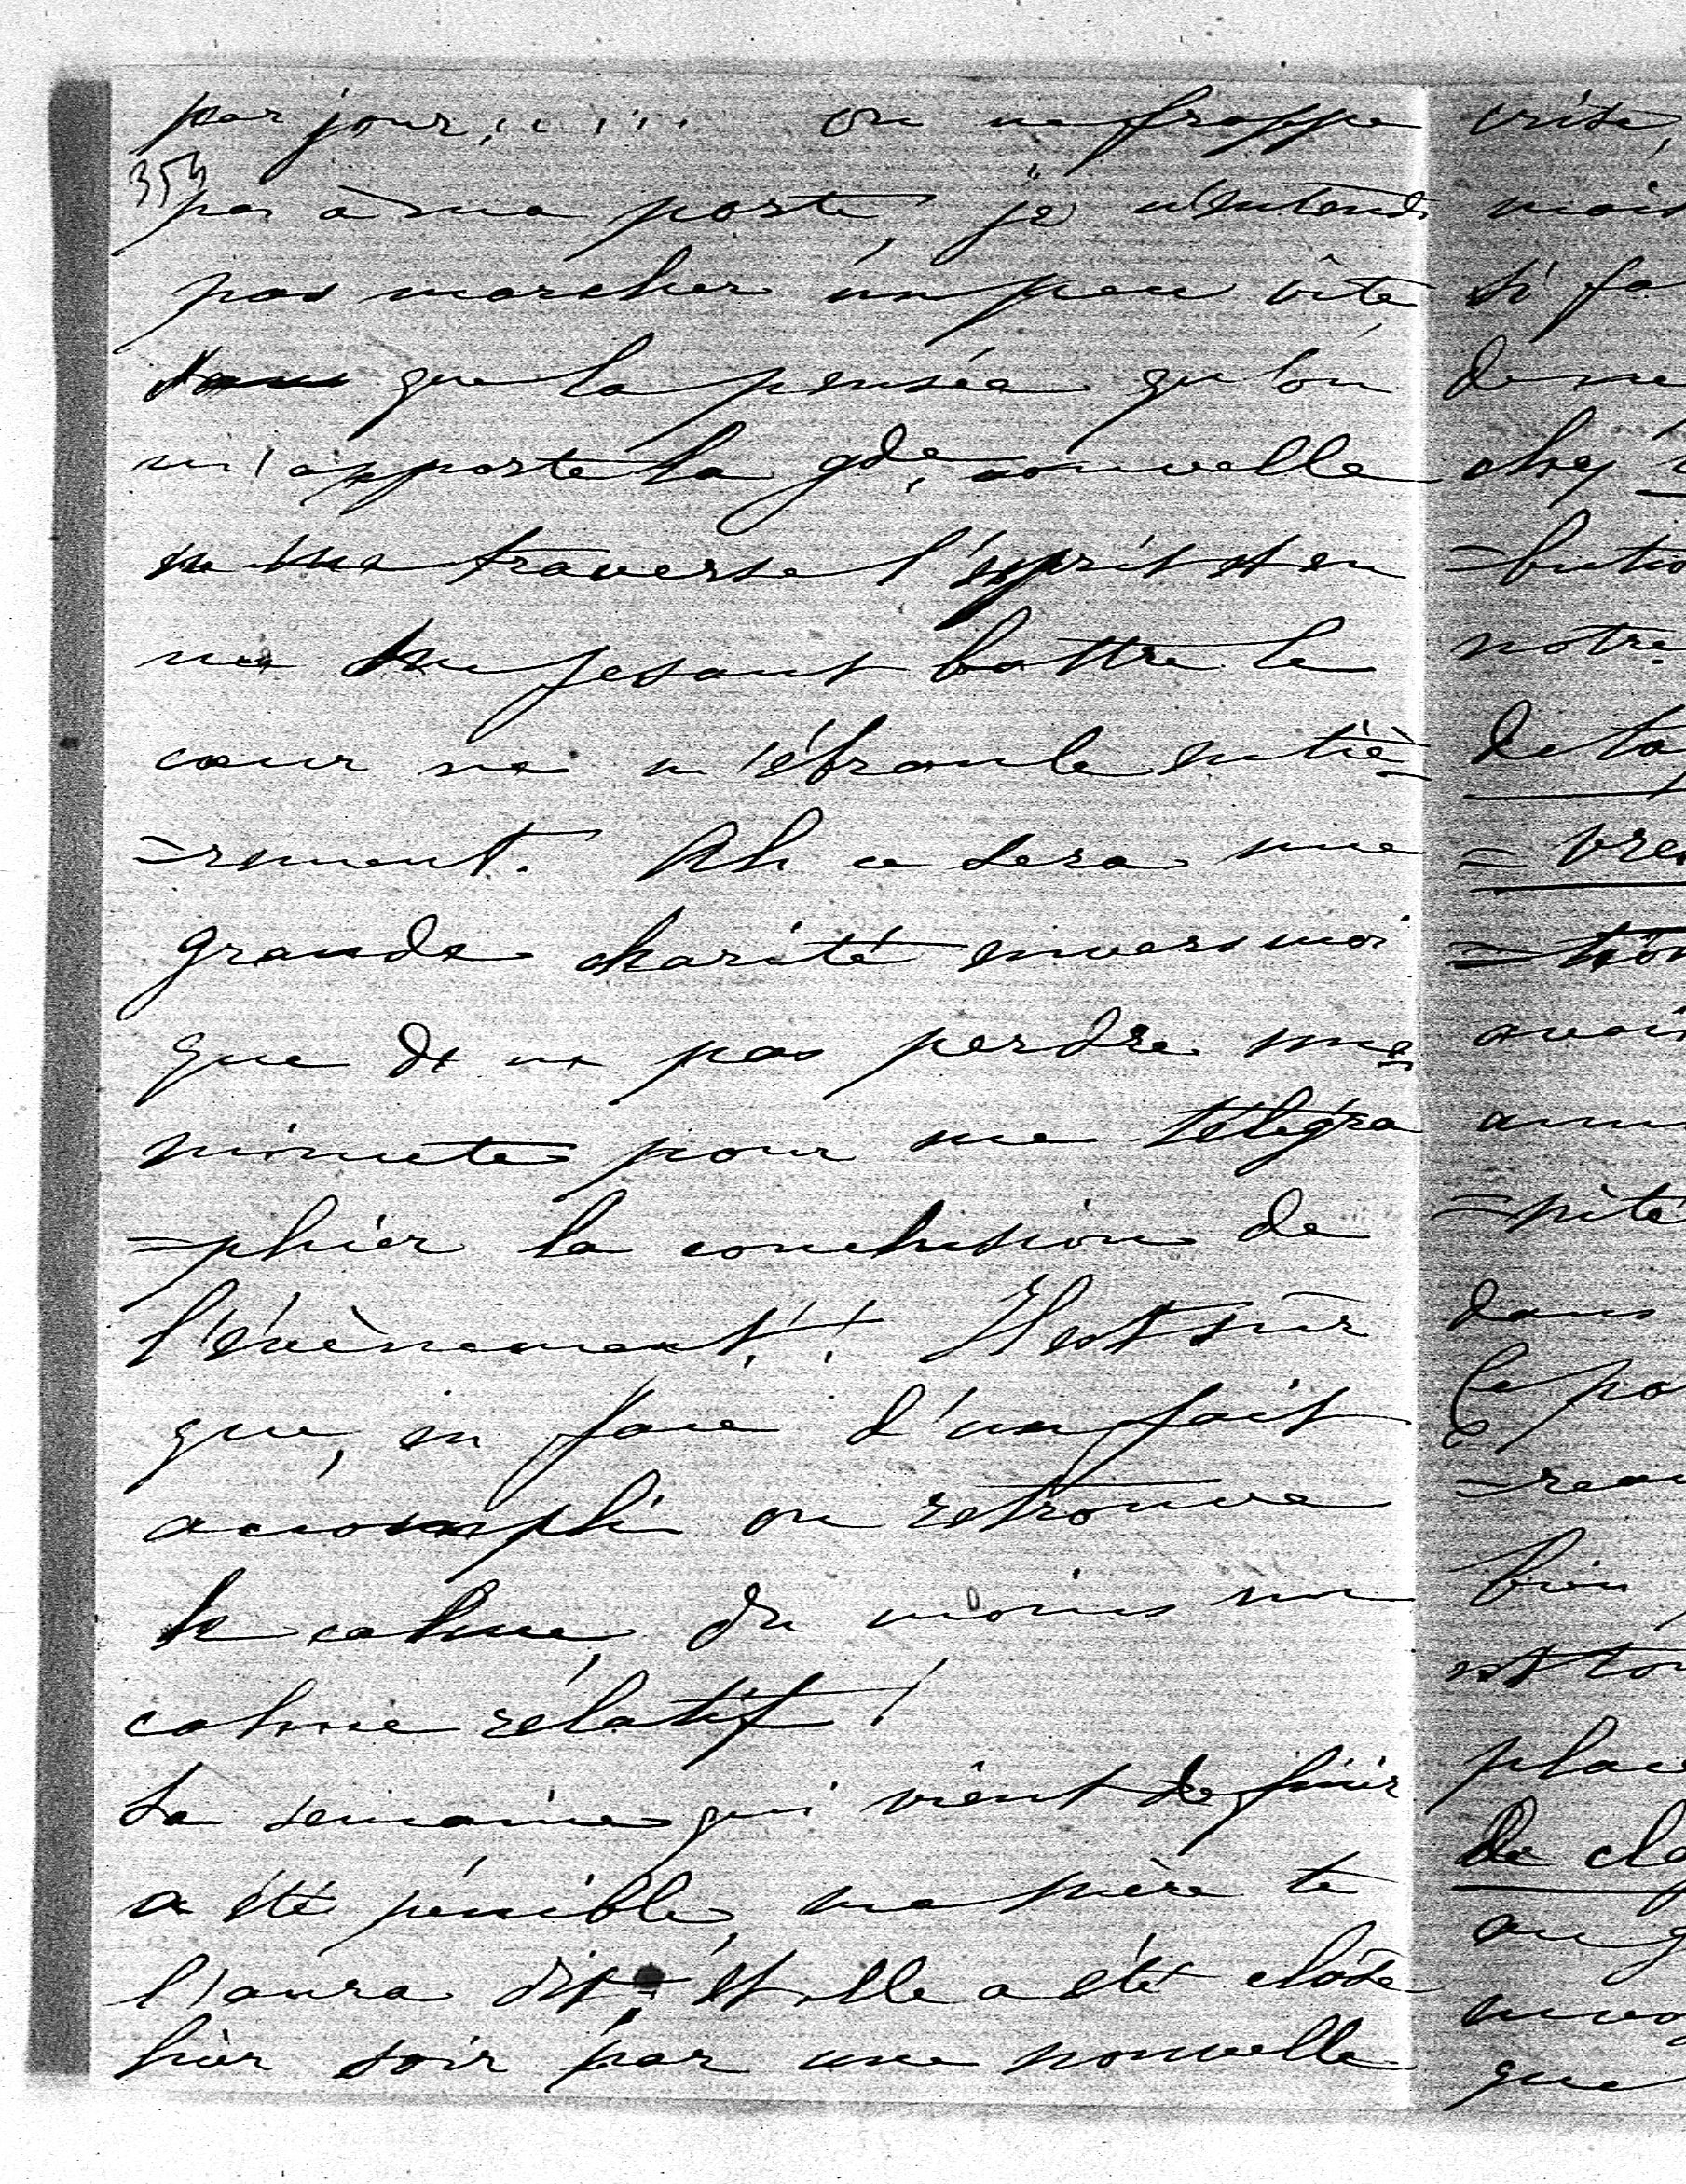 par jour . . . . . . on ne frappe
353
pas à ma porte, je n'entends
pas marcher un peu vite
sans que la pensée qu'on
m'apporte la gde. nouvelle
ne me traverse l'esprit et en
me fesant battre le
cœur ne m'ébranle entiè-
=rement. Ah ce sera une
grande charité envers moi
que de ne pas perdre une
minute pour me télégra
=phier la conclusion de
l'évènement!! Il est sûr
que, en face d'un fait
accompli on retrouve
le calme, du moins un
calme rélatif!
La semaine qui vient de finir
a été pénible, ma mère te
l'aura dit; et elle a été close
hier soir par une nouvelle
crise,
mais
si fa
de me
chez
=butio
notre
de ta
= vre
=tion
avai
ann
=pité
dans
Ce po
=reau
bien
est to
place
de cle
au g
que